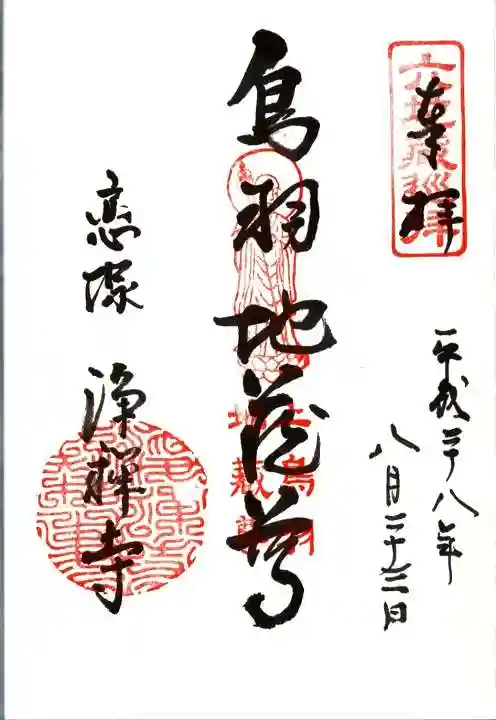 奉拝
六地蔵巡拝
平成二十八年
八月二十三日
鳥羽地蔵尊
恋塚
浄禅寺